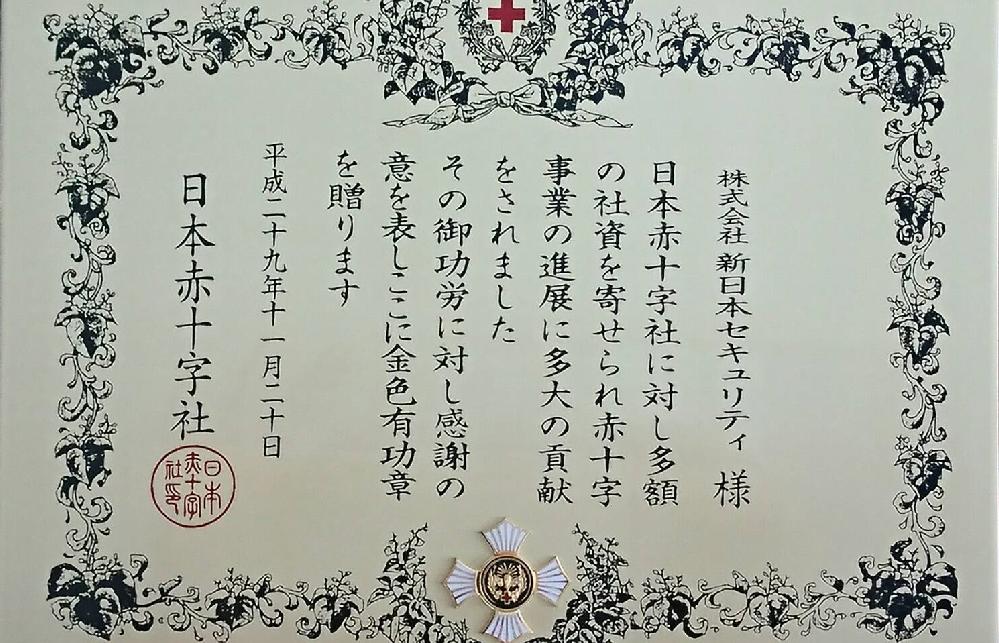 株式会社 新日本セキュリティ 様
日本赤十字社に対し多額
の社資を寄せられ赤十字
事業の進展に多大の貢献
をされました
その御功労に対し感謝の
意を表しここに金色有功章
を贈ります
平成二十九年十一月二十日
日本赤十字社
日本
赤十字
社印